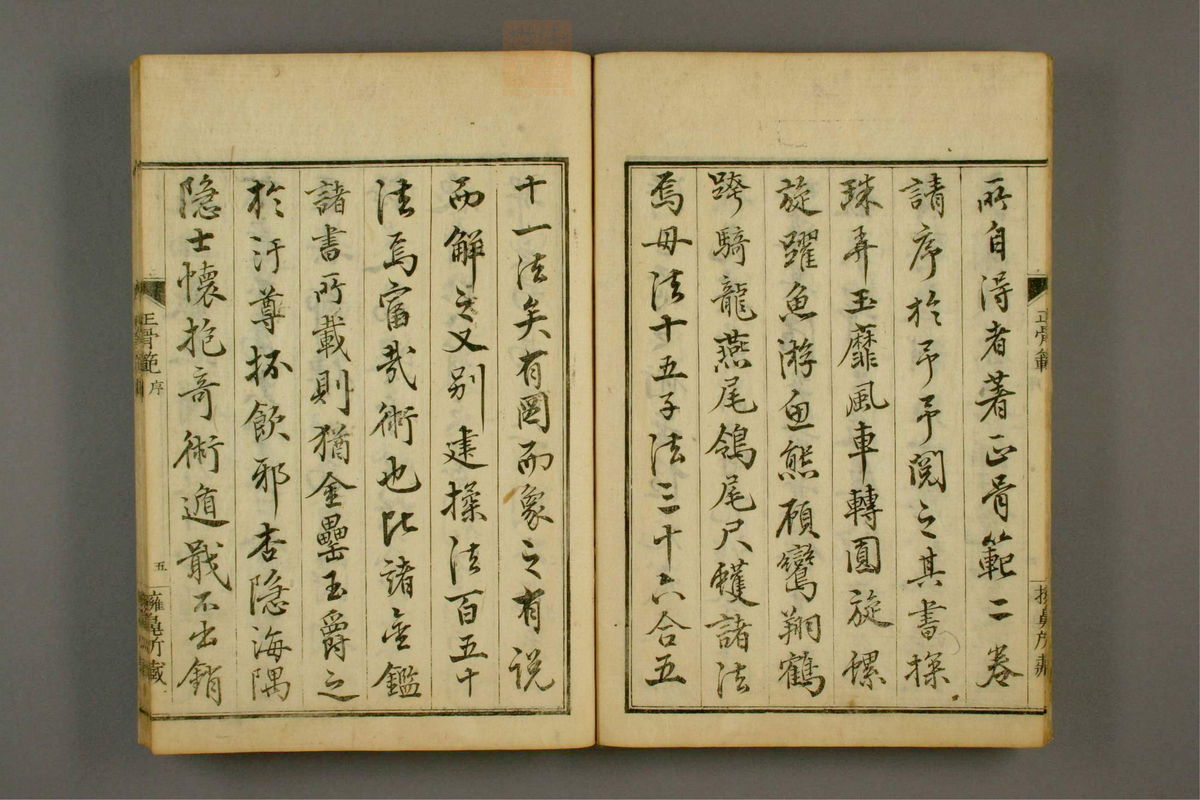 所自得者著正骨範二卷
請序於予予閱之其書探
珠弄玉靡風車轉圓旋螺
旋躍魚游魚熊顧鸞翔鶴
跨騎龍燕尾鴿尾尺蠖諸法
焉母法十五子法三十六合五
正骨範
十一法矣有図而象之有説
而解之又別建操法百五十
法焉富哉術也比諸金鑑
諸書所載則猶金罍玉爵之
於汙尊抔飲邪杏隱海隅
隱士懷抱奇術遁戢不出銷
正骨範 序
五